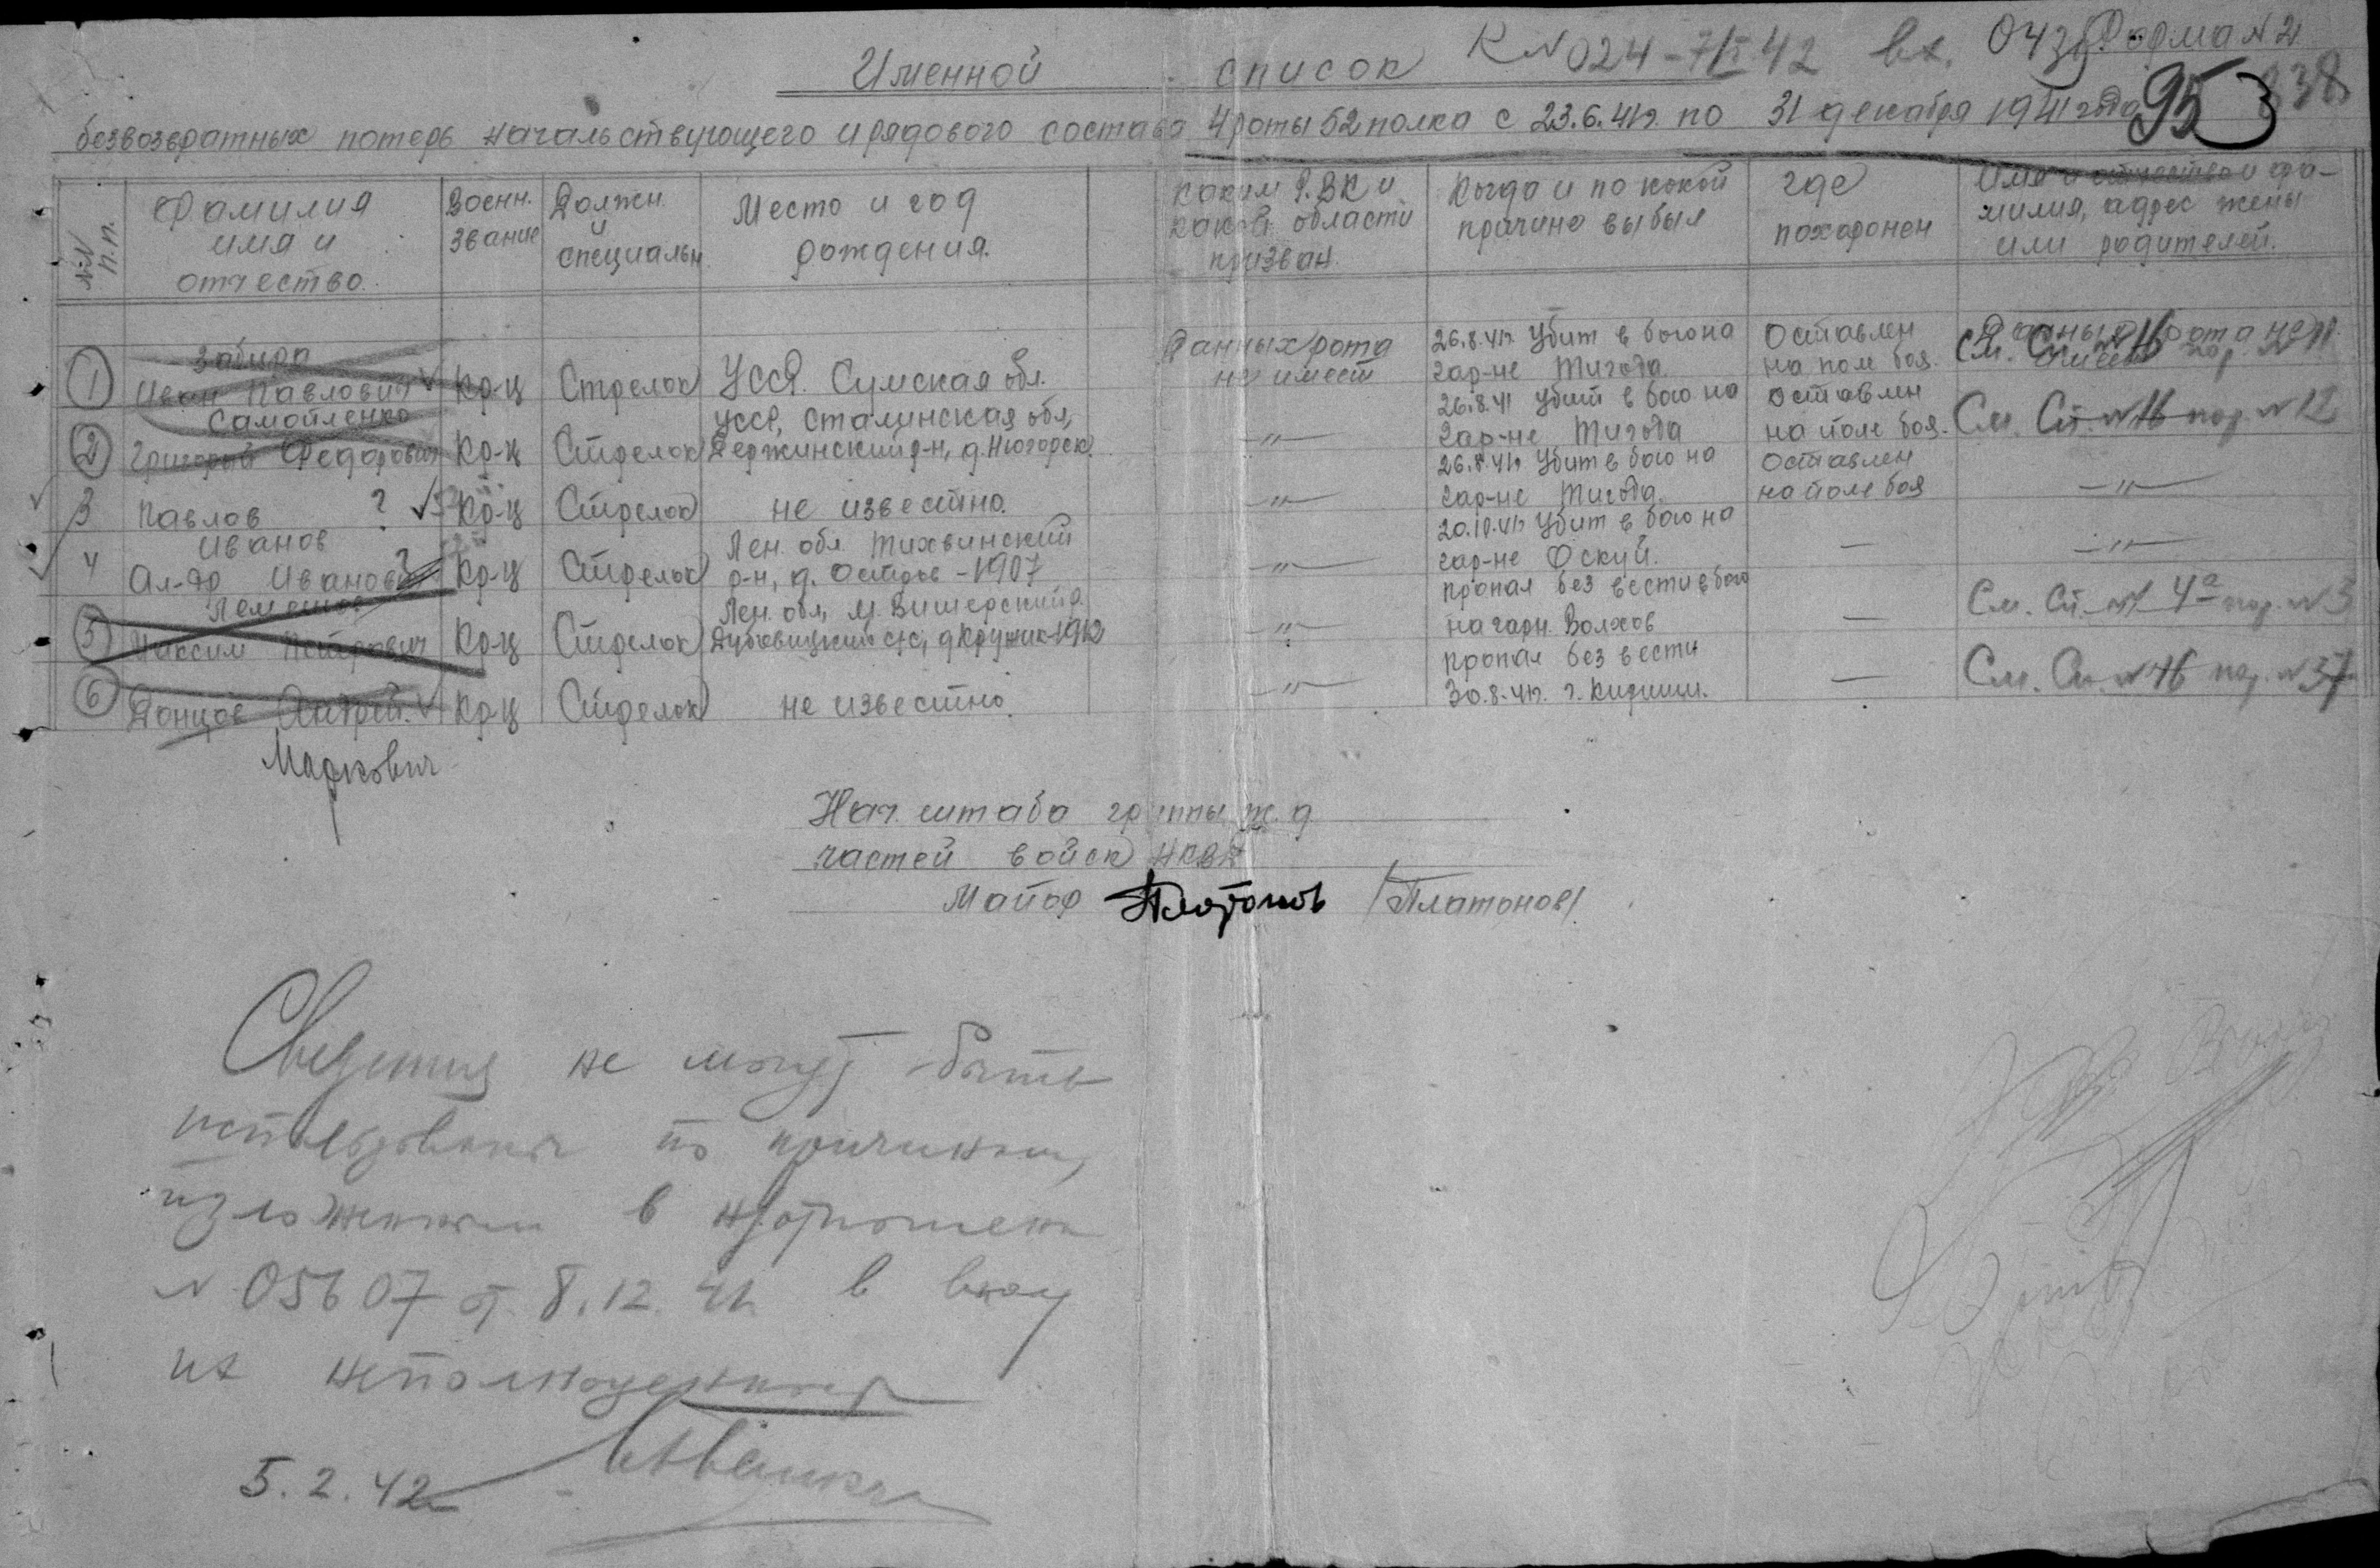 К № 024 - 7/I 42 вх. 043 Форма № 2
Именной список
95 3 338
безвозвратных потерь начальствующего и рядового состава 4 роты 52 полка с 23.6.41г. по 31 декабря 1941 года
№№ п.п. Фамилия имя и отчество. Военн. звание Должн. и специальн. Место и год рождения. Каким Р.ВК и какой области призван. Когда и по какой причине выбыл где похоронен Имя и отчество и фамилия, адрес жены или родителей.
1 Забира Иван Павлович Кр-ц Стрелок УССР. Сумская обл. Данных рота не имеет 26.8.41г. Убит в бою на гар-не Тигода. Оставлен на поле боя. Данных рота не имеет См. Сп. № 16 пор. № 11
2 Самойленко Григорий Федорович Кр-ц Стрелок УССР, Сталинская обл, Держинский р-н, д. Нюгорск. —"— 26.8.41 Убит в бою на гар-не Тигода Оставлен на поле боя. См. Сп. № 16 пор. № 12
3 Павлов ? Кр-ц Стрелок не известно. —"— 26.8.41г. Убит в бою на гар-не Тигода. Оставлен на поле боя —"—
4 Иванов Ал-др Иванович ? Кр-ц Стрелок Лен. обл. Тихвинский р-н, д. Остров - 1907 —"— 20.10.41г. Убит в бою на гар-не Оскуй. — —"—
5 Лемешов Максим Петрович Кр-ц Стрелок Лен. обл, М. Вишерский р. с/с, д Кружик-1912 —"— пропал без вести в бою на гарн. Волхов — См. Сп. № 4а пор. № 3
6 Донцов Андрей. Кр-ц Стрелок не известно. —"— пропал без вести 30.8.41г. г. Кириши. — См. Сп. № 16 пор. № 37
Маркович
Нач. штаба группы ж.д.
частей войск НКВД
Майор Платонов /Платонов/.
Сведения не могут быть
использованы по причинам,
изложенным в н/отношен
№ 05607 от 8.12.41г. в виду
их неполноценности
5.2.42